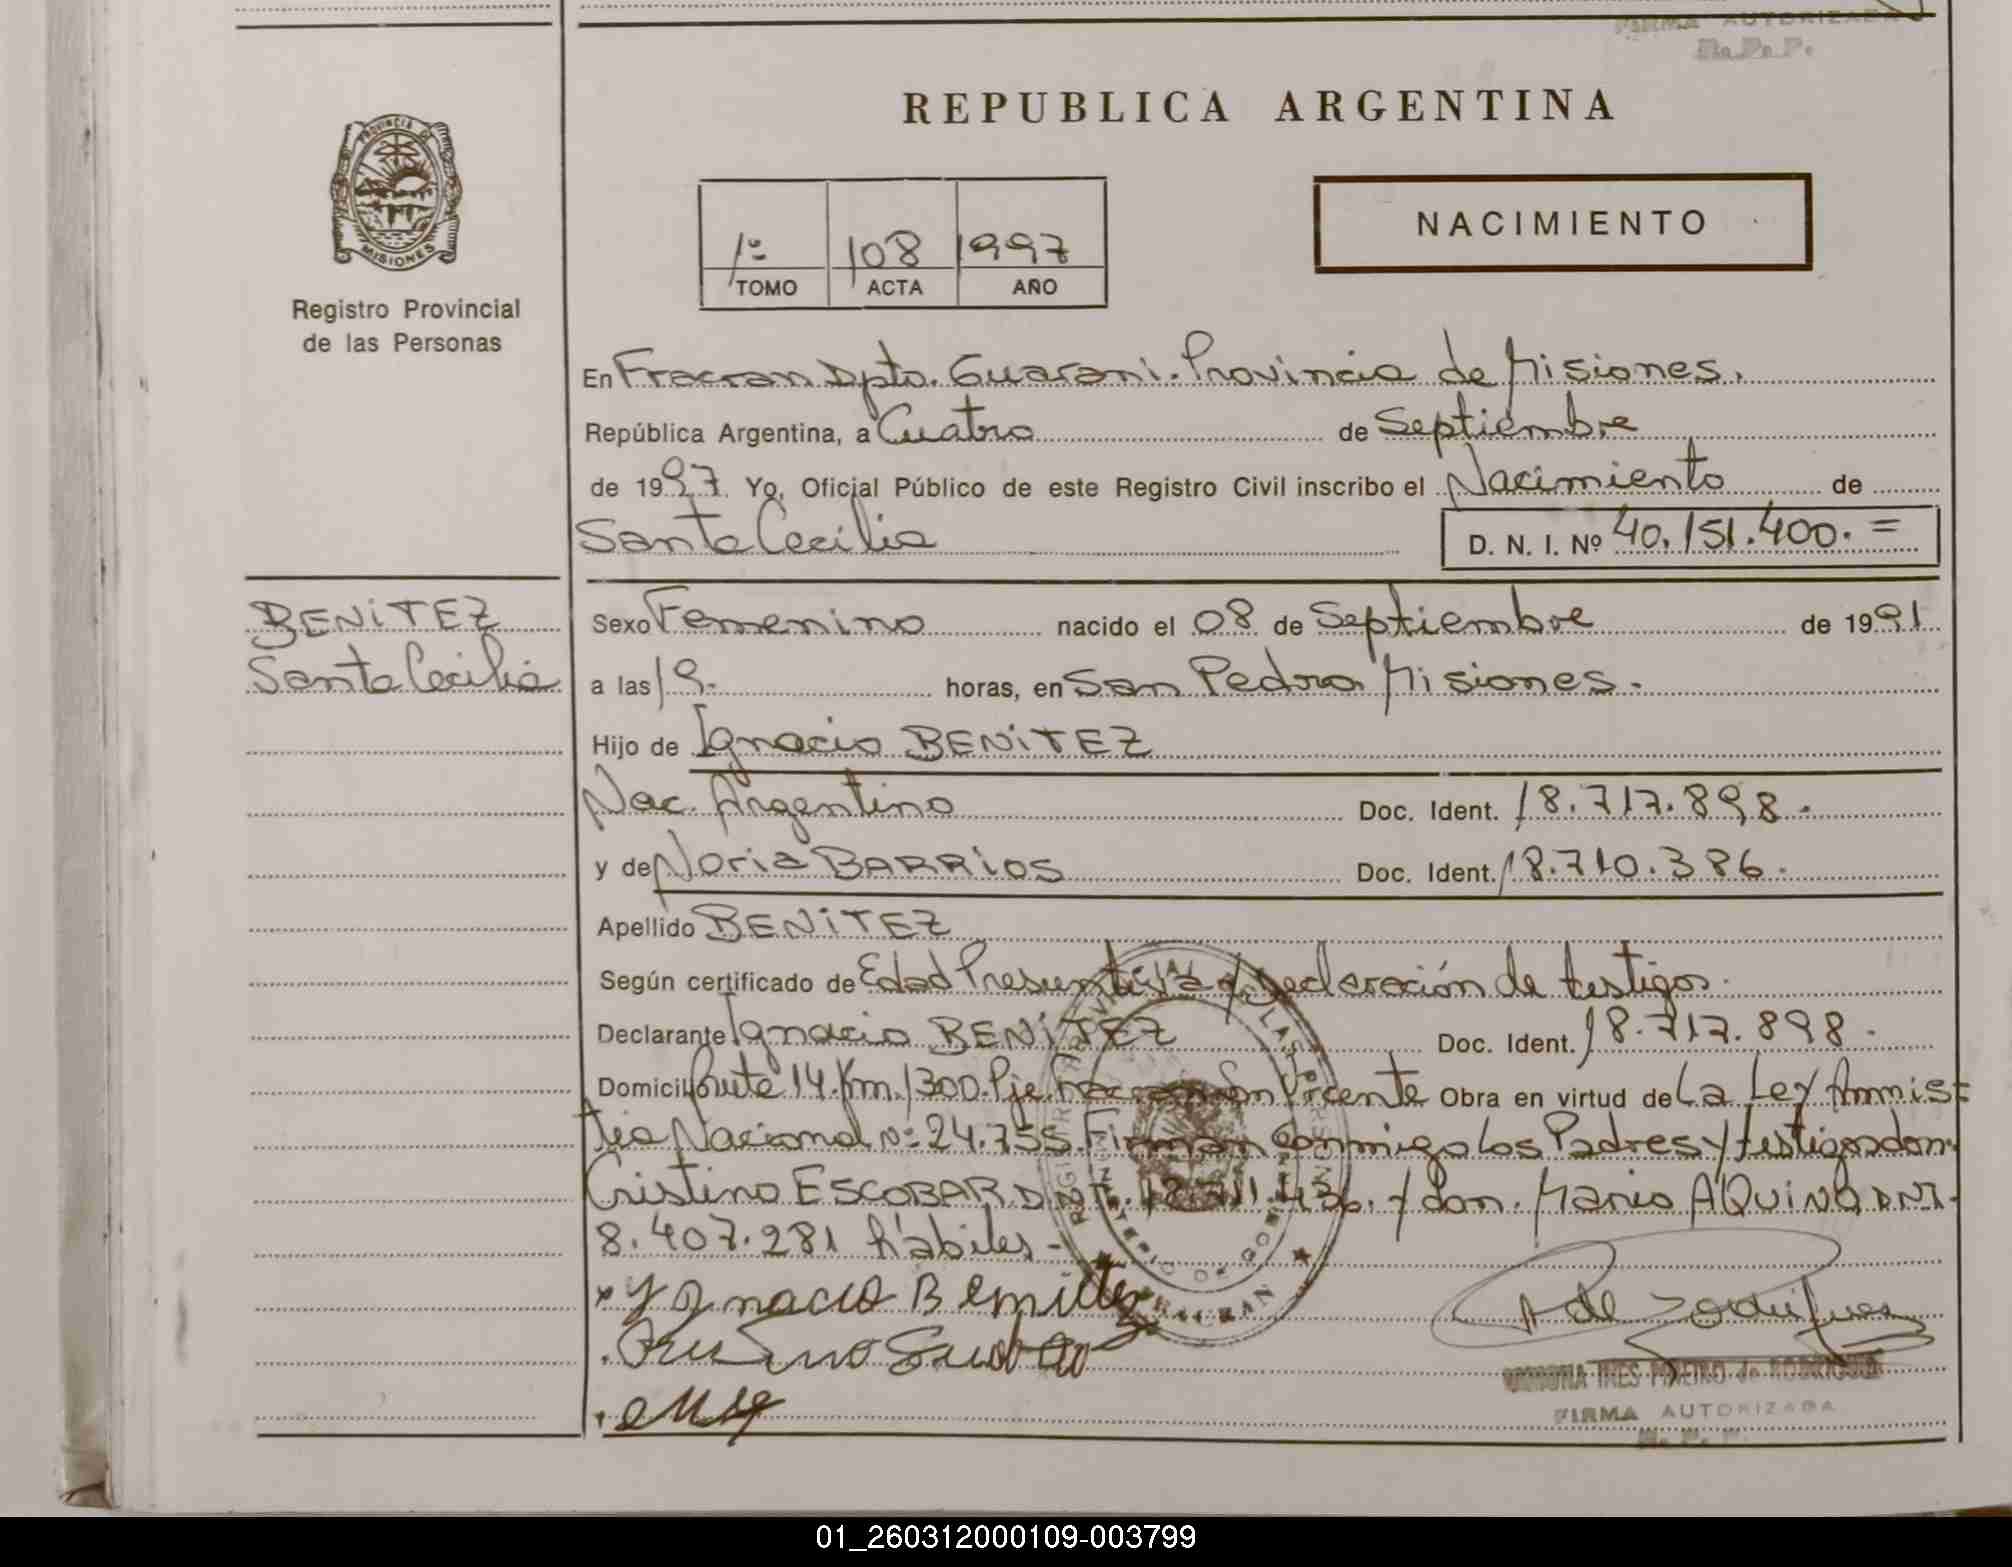 FIRMA AUTORIZADA
R. P. P.
REPUBLICA ARGENTINA
PROVINCIA DE
MISIONES
Registro Provincial
de las Personas
1º 108 1997
TOMO ACTA AÑO
NACIMIENTO
En Fracran Dpto. Guarani. Provincia de Misiones.
República Argentina, a Cuatro de Septiembre
de 1997. Yo, Oficial Público de este Registro Civil inscribo el Nacimiento de
Santa Cecilia D. N. I. Nº 40.151.400.=
BENiTEZ
Santa Cecilia
Sexo Femenino nacido el 08 de Septiembre de 1991
a las 19. horas, en San Pedro Misiones.
Hijo de Ignacio BENiTEZ
Nac. Argentino Doc. Ident. 18.717.898.
y de Noria BARRiOS Doc. Ident. 18.710.386.
Apellido BENiTEZ
Según certificado de Edad Presuntiva y Declaración de testigos.
Declarante Ignacio BENiTEZ Doc. Ident. 18.717.898.
Domicilio Ruta 14. Km. 1300. Pje. Fracran San Vicente Obra en virtud de La Ley Amnis-
tia Nacional Nº 24.755. Firman conmigo los Padres y testigos don.
Cristino ESCOBAR D.N.I. y don. Mario AQUiNO DNI.
8.407.281 hábiles.-
x Ygnacio Benitez
FRACRAN
de RODRIGUEZ
FIRMA AUTORIZADA
R. P. P.
01_260312000109-003799